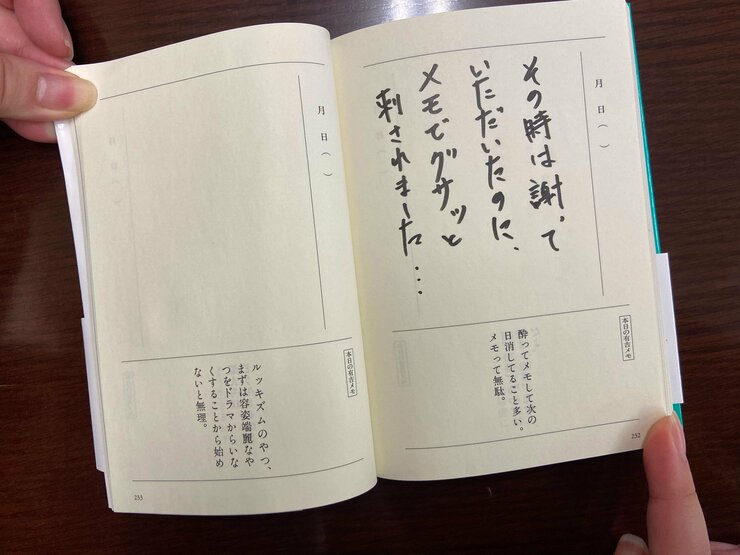 月　日（　）
その時は謝って
いただいたのに、
メモでグサッと
刺されました…
本日の有吉メモ
酔ってメモして次の
日消してること多い。
メモって無駄。
232
月　日（　）
本日の有吉メモ
ルッキズムのやつ、
まずは容姿端麗なや
つをドラマからいな
くすることから始め
ないと無理。
233